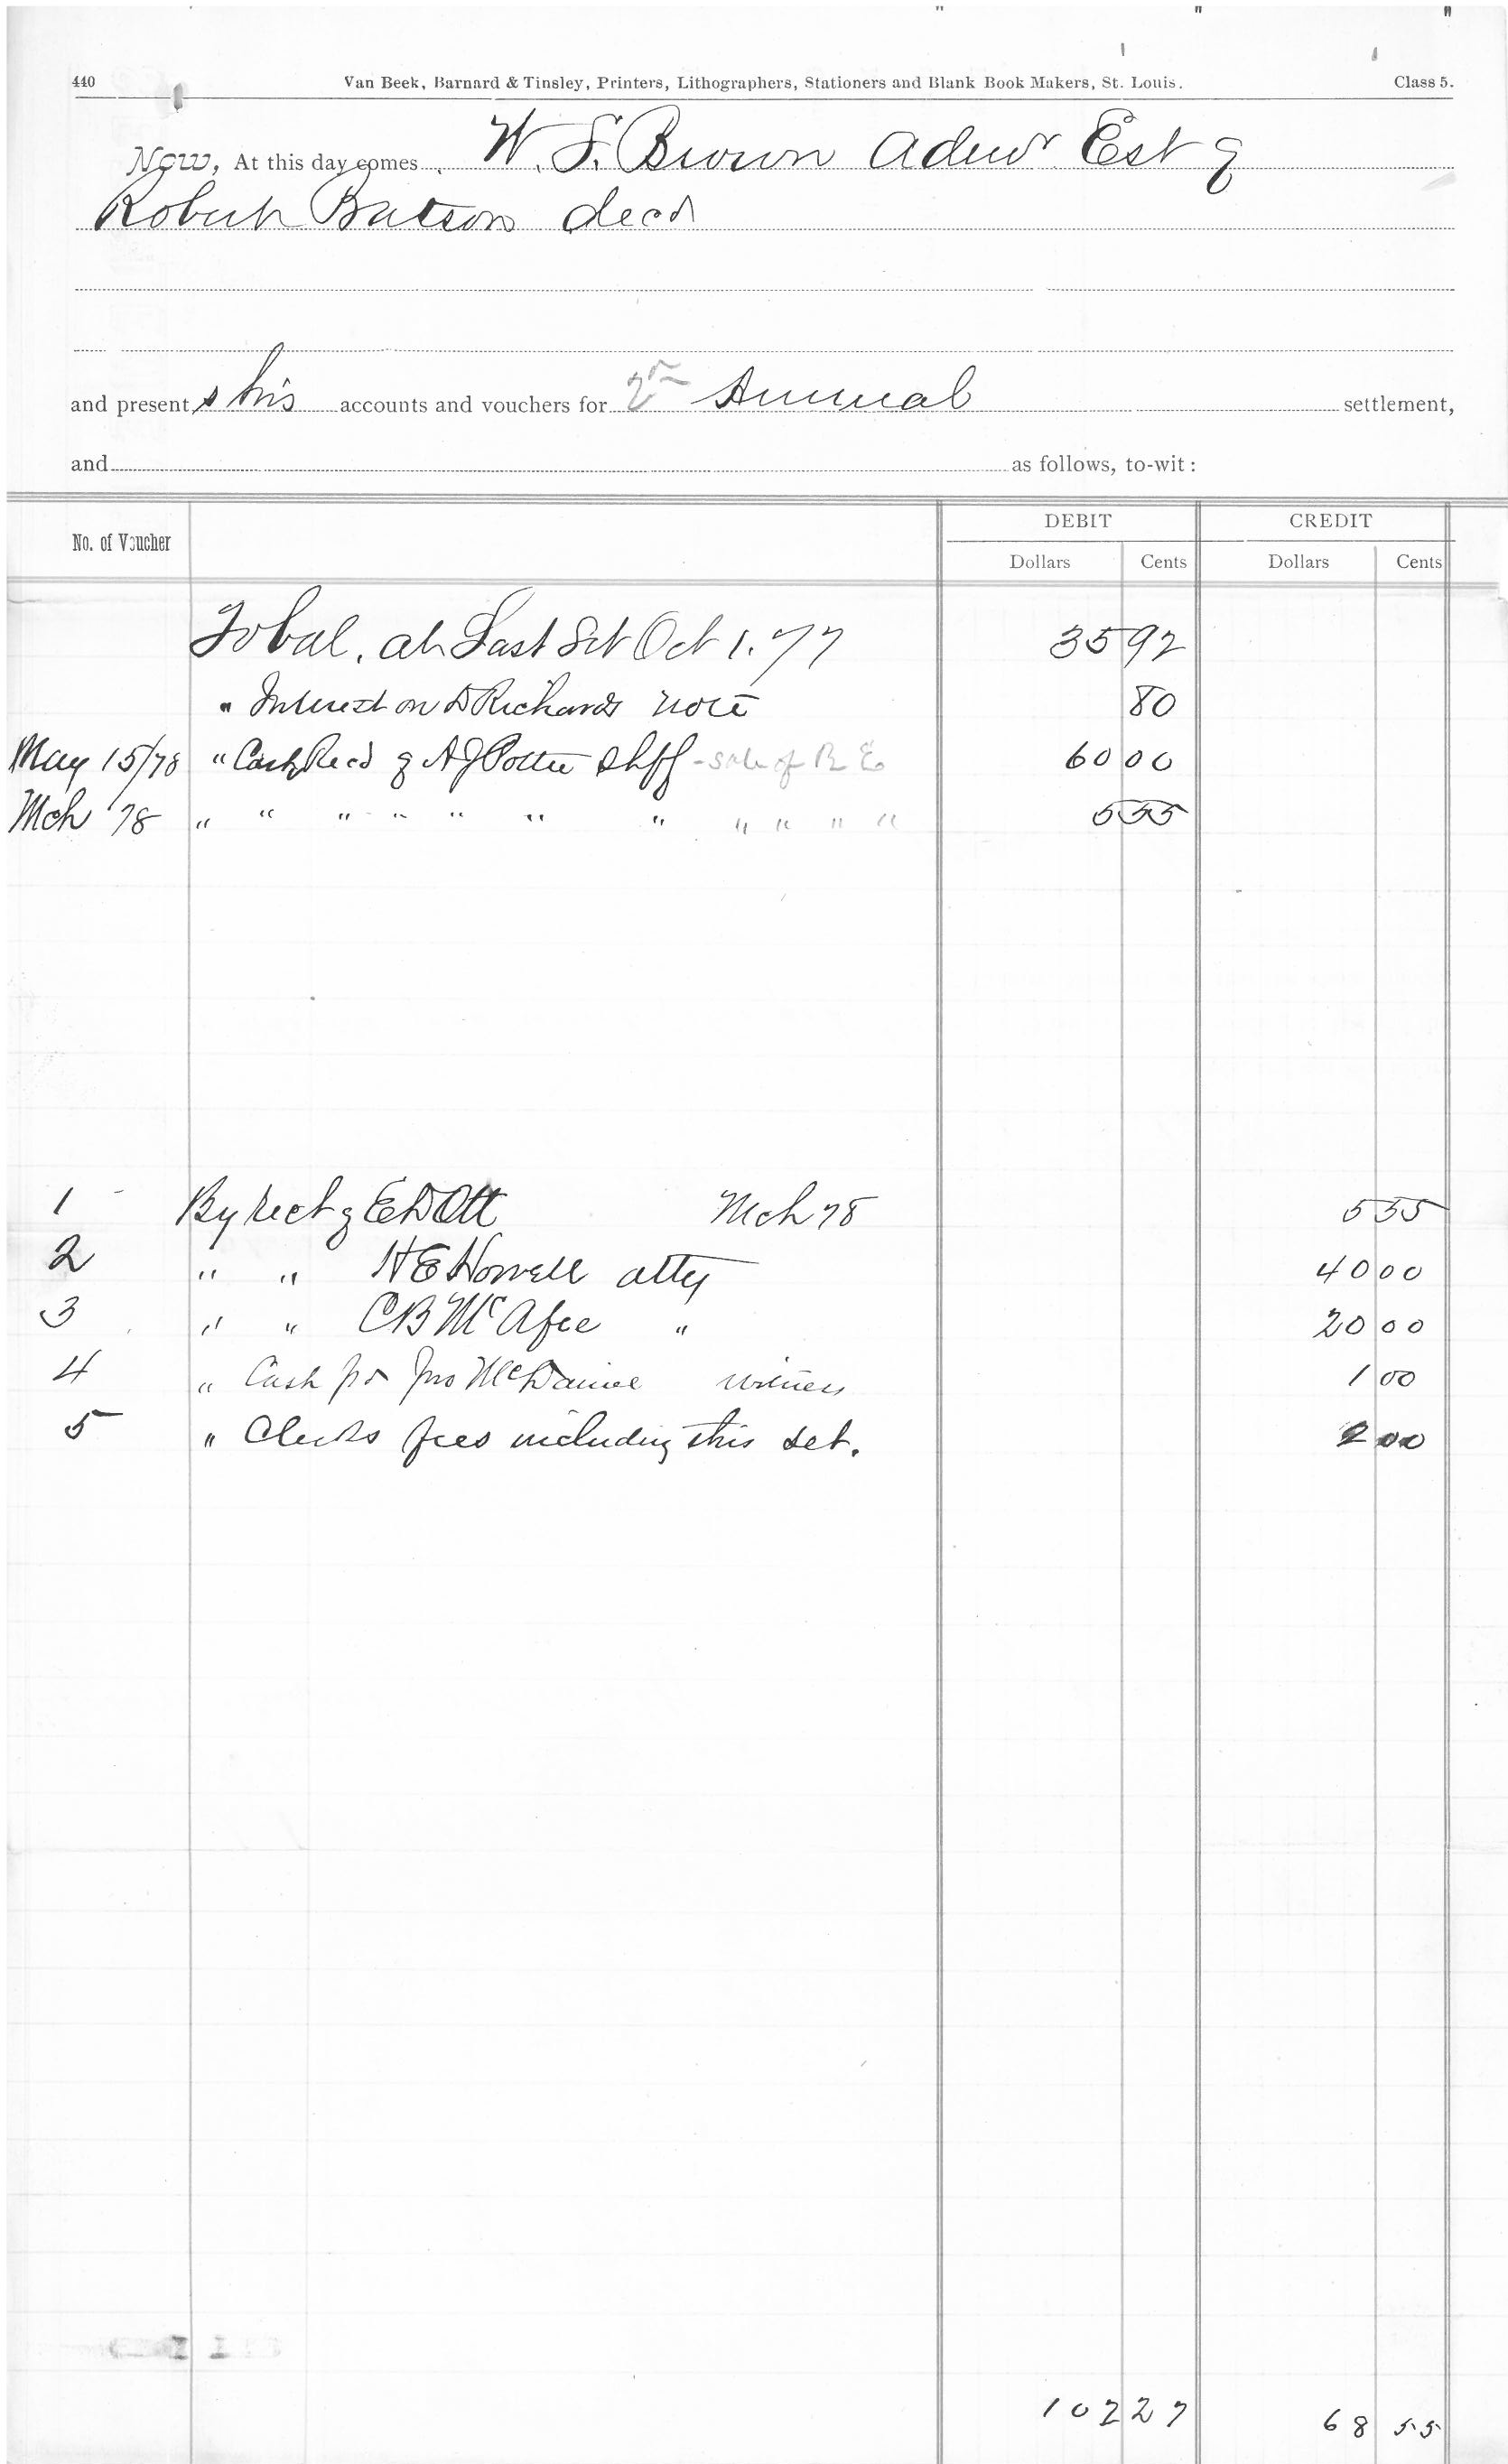 440 Van Beek, Barnard & Tinsley, Printers, Lithographers, Stationers and Blank Book Makers, St. Louis. Class 5.
Now, At this day comes W. S. Brown Admr Est of
Robert Batson decd
and presents his accounts and vouchers for 2nd Annual settlement,
and as follows, to-wit:
DEBIT CREDIT
No. of Voucher
Dollars Cents Dollars Cents
To bal. at Last Set Oct 1. 77 35 92
" Interest on D Richards note 80
May 15/78 " Cash Recd of A J Potter Shff - sale of R E 60 00
Mch 78 " " " " " " " " " " " 5 55
1 By rect of E D Ott Mch 78 5 55
2 " " H E Howell atty 40 00
3 " " C B McAfee " 20 00
4 " Cash pd Jno McDaniel witness 1 00
5 " Clerks fees including this set. 2 00
102 27 68 55